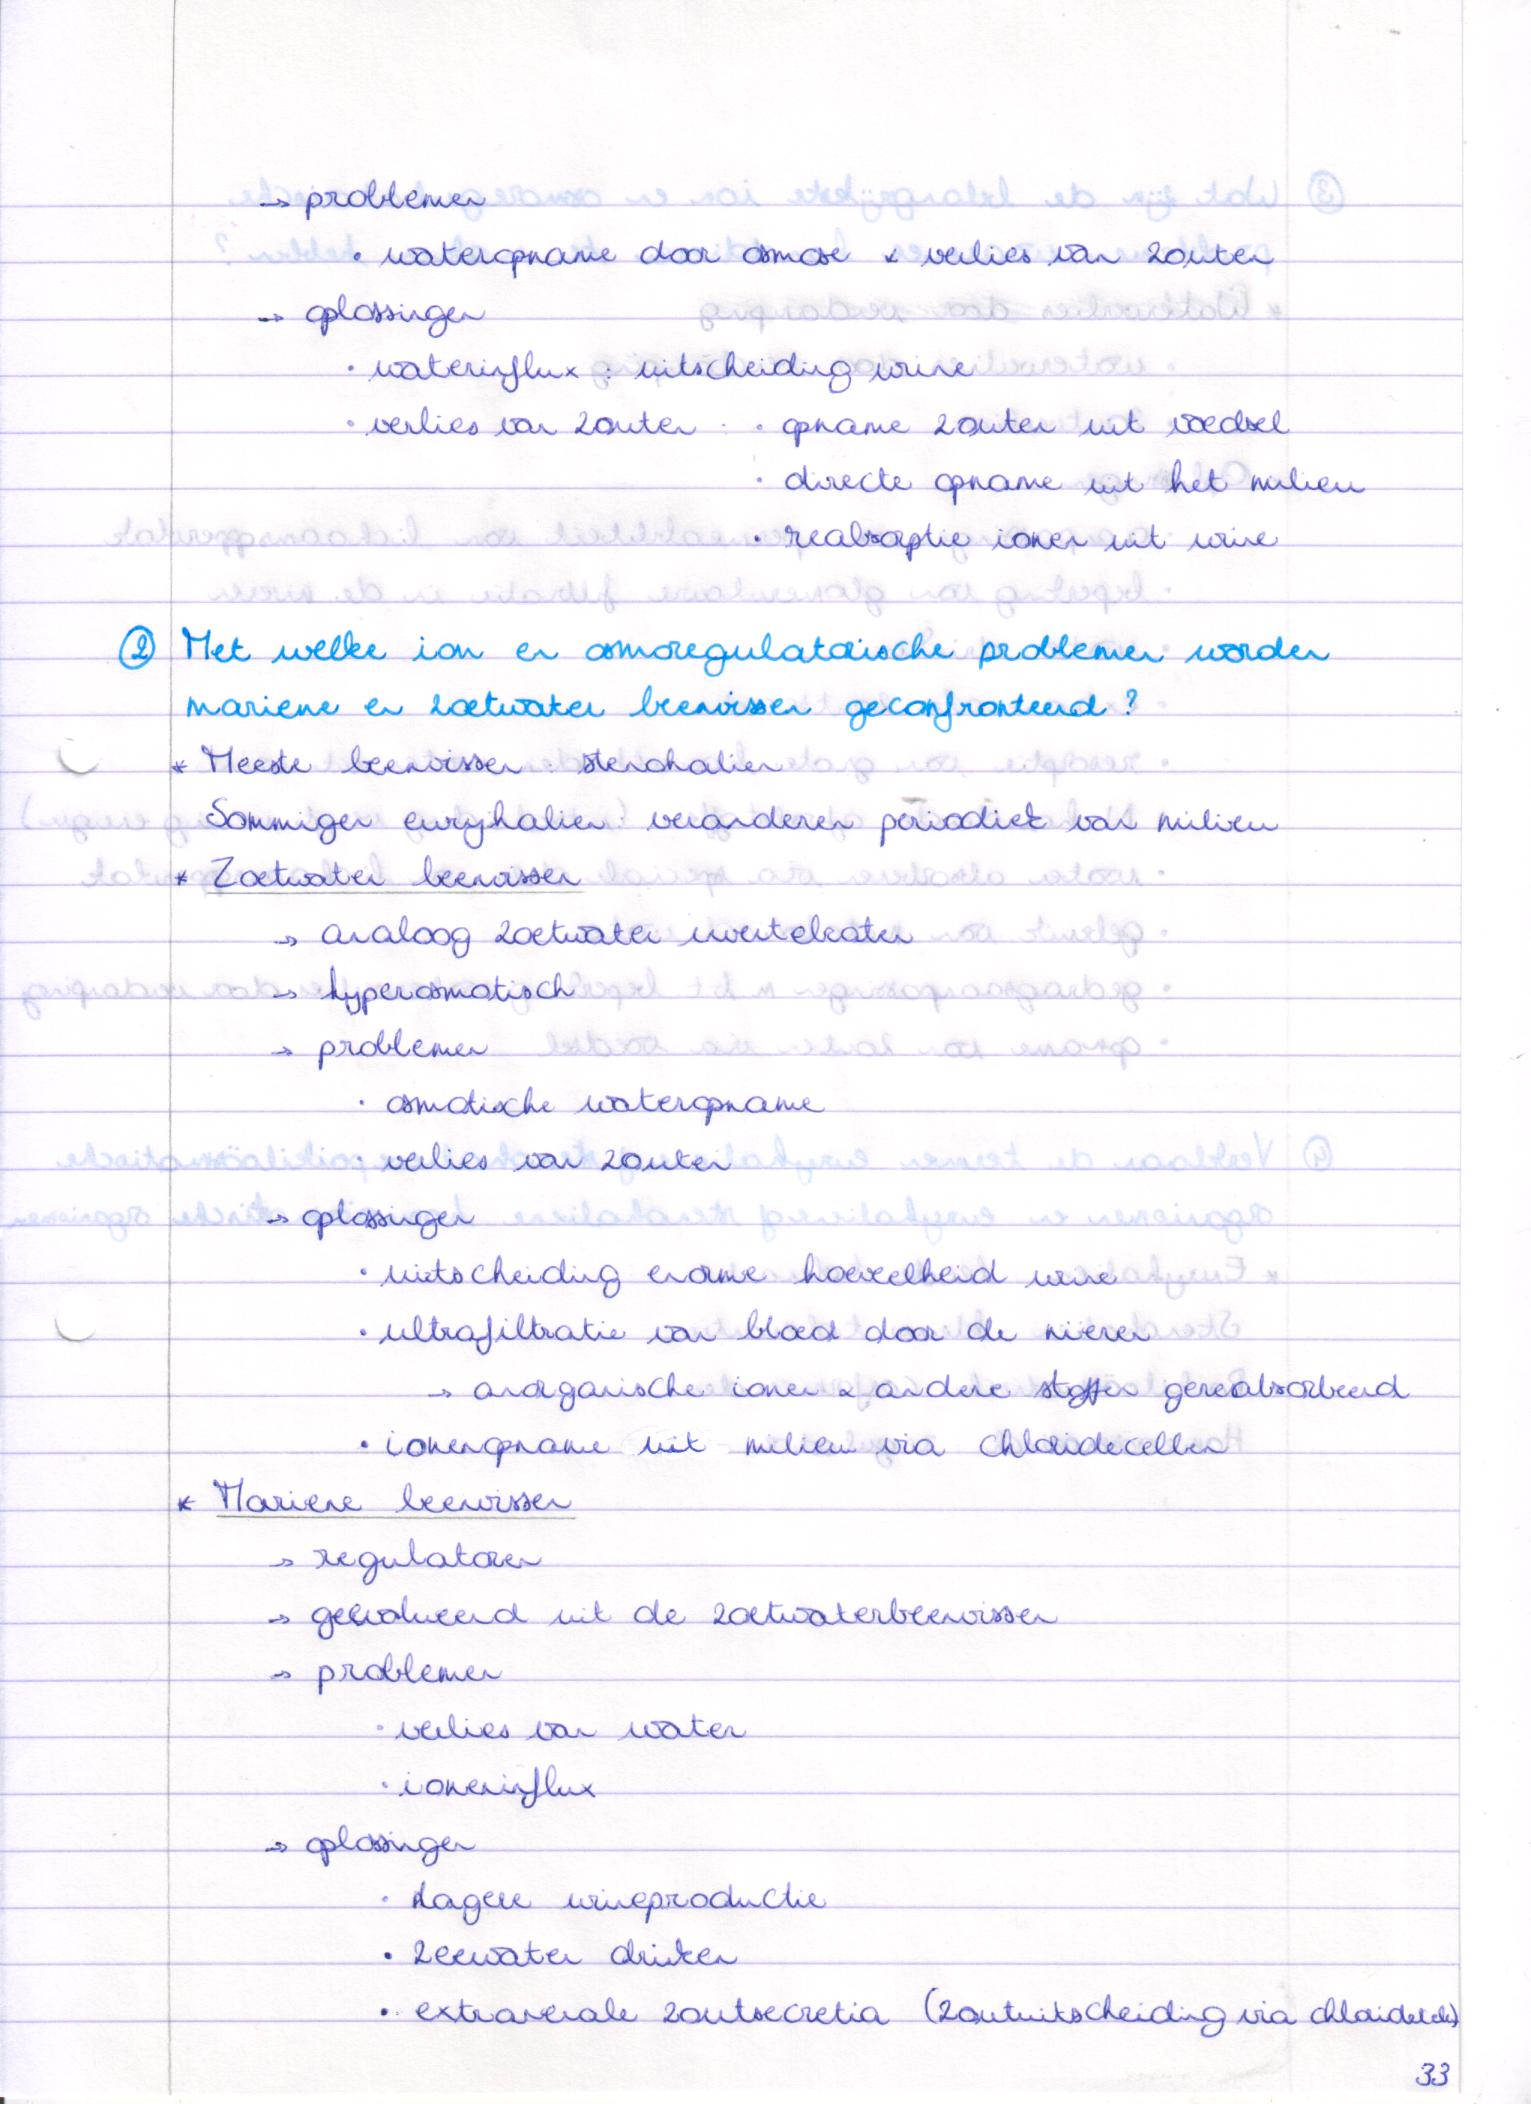 → problemen
• wateropname door osmose & verlies van zouten
→ oplossingen
• waterinflux : uitscheiding urine
• verlies van zouten : • opname zouten uit voedsel
• directe opname uit het milieu
• reabsorptie ionen uit urine
② Met welke ion en osmoregulatorische problemen worden
mariene en zoetwater beenvissen geconfronteerd ?
* Meeste beenvissen : stenohalien
Sommigen euryhalien : veranderen periodiek van milieu
* Zoetwater beenvissen
→ analoog zoetwater invertebraten
→ hyperosmotisch
→ problemen
• osmotische wateropname
• verlies van zouten
→ oplossingen
• uitscheiding enorme hoeveelheid urine
• ultrafiltratie van bloed door de nieren
→ anorganische ionen & andere stoffen gereabsorbeerd
• ionenopname uit milieu via chloridecellen
* Mariene beenvissen
→ regulatoren
→ geëvolueerd uit de zoetwaterbeenvissen
→ problemen
• verlies van water
• ioneninflux
→ oplossingen
• lagere urineproductie
• zeewater drinken
• extrarenale zoutsecretia (zoutuitscheiding via
33